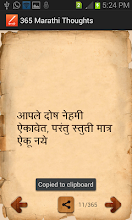 5:24 PM
365 Marathi Thoughts
आपले दोष नेहमी
ऐकावेत, परंतु स्तुती मात्र
ऐकू नये
Copied to clipboard
11/365